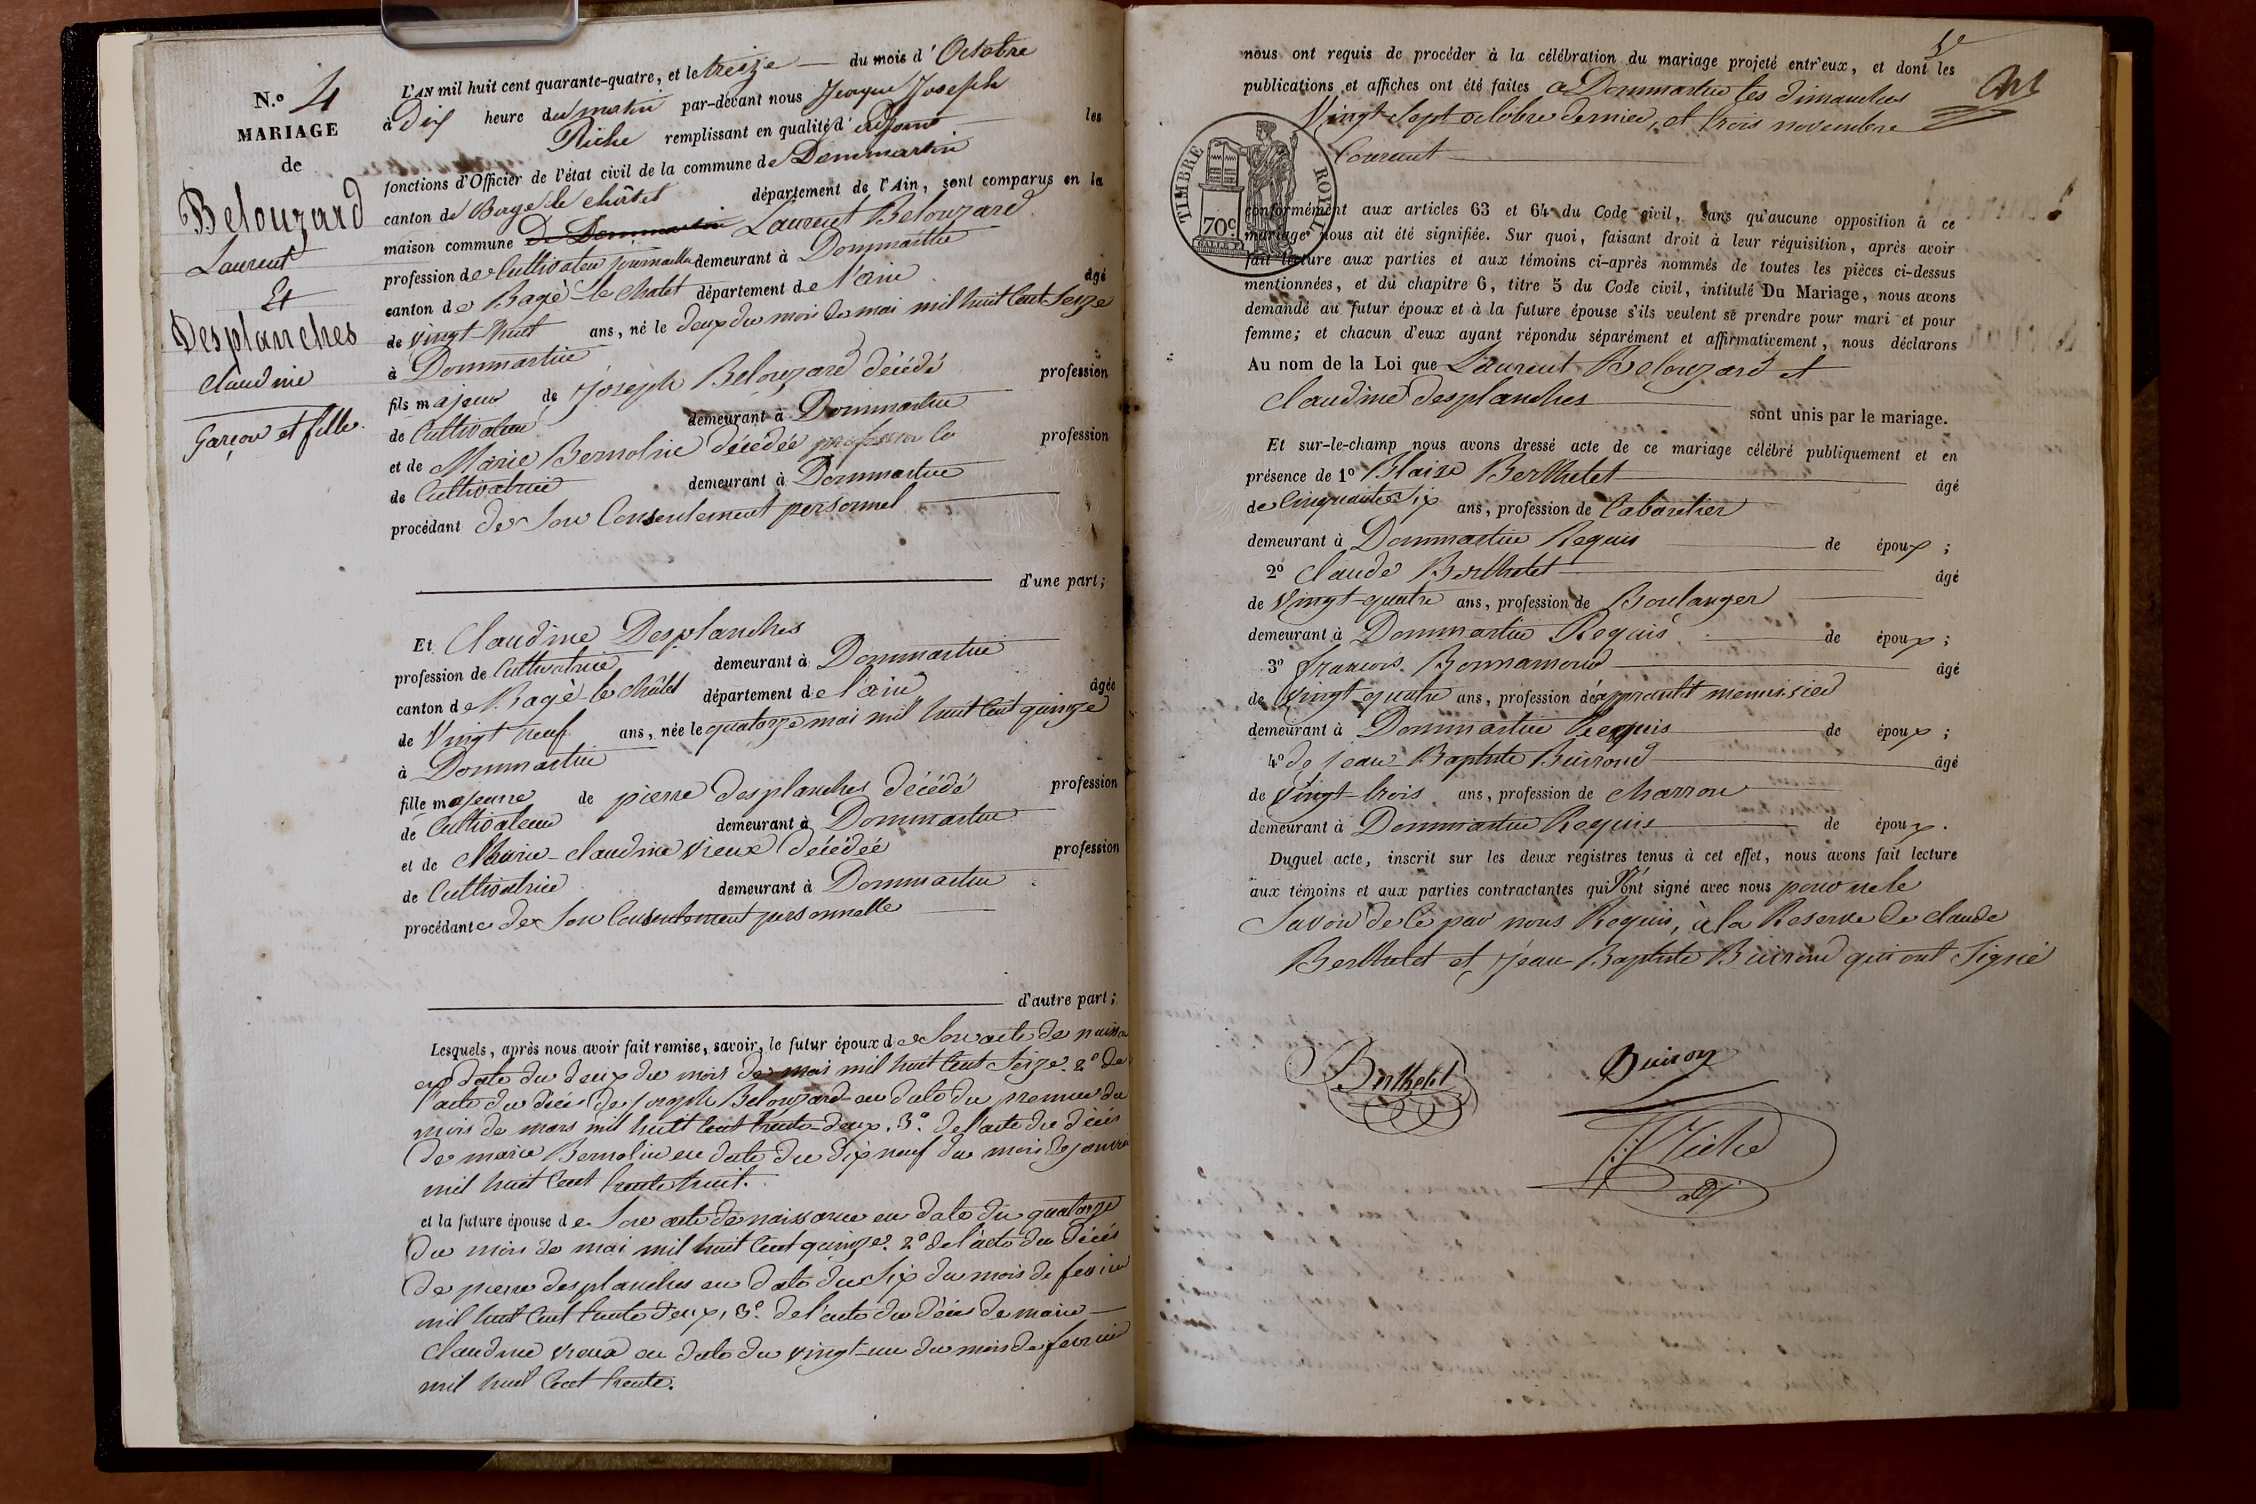 N.o 4
MARIAGE
de
Belouzard
Laurent
Et
Desplanches
Claudine
Garçon et fille
L'AN mil huit cent quarante-quatre, et le treize du mois d'Octobre
à Dix heure du matin par-devant nous George Joseph
Riche remplissant en qualité d'adjoint les
fonctions d'Officier de l'état civil de la commune de Dommartin
canton de Bagé le châtel département de l'Ain, sont comparus en la
maison commune De Dommartin Laurent Belouzard
profession de Cultivateur journallier demeurant à Dommartin
canton de Bagé-le-chatel département de l'ain âgé
de vingt-huit ans, né le deux du mois de mai mil huit Cent Seize
à Dommartin
fils majeur de Joseph Belouzard décédé profession
de Cultivateur demeurant à Dommartin
et de Marie Bernolin décédée profession de profession
de Cultivatrice demeurant à Dommartin
procédant de Son Consentement personnel
d'une part;
Et Claudine Desplanches
profession de Cultivatrice demeurant à Dommartin
canton de Bagé-le-châtel département de l'ain âgée
de Vingt neuf ans, née le quatorze mai mil huit Cent quinze
à Dommartin
fille majeure de pierre desplanches décédé profession
de Cultivateur demeurant à Dommartin
et de Marie-claudine vieux décédée profession
de Cultivatrice demeurant à Dommartin
procédante de Son Consentement personnelle
d'autre part;
Lesquels, après nous avoir fait remise, savoir, le futur époux de Son acte de naissa
en date du deux du mois de mai mil huit Cent Seize. 2o de
l'acte du décés de Joseph Belouzard en date du premier du
mois de mars mil huit Cent trente-deux, 3o. de l'acte du décés
de marie Bernolin en date du dix neuf du mois de janvier
mil huit Cent trente huit.
et la future épouse de Son acte de naissance en date du quatorze
du mois de mai mil huit Cent quinze. 2o de l'acte du décés
de pierre desplanches en date du Six du mois de fevrier
mil huit Cent trente deux, 3o. de l'acte du décés de marie
Claudine vieux en date du vingt-un du mois de fevrier
mil huit Cent trente.
nous ont requis de procéder à la célébration du mariage projeté entr'eux, et dont les
publications et affiches ont été faites a Dommartin les dimanches
Vingt Sept octobre dernier, et trois novembre
Courant
TIMBRE ROYAL
70c.
conformément aux articles 63 et 64 du Code civil, sans qu'aucune opposition à ce
mariage nous ait été signifiée. Sur quoi, faisant droit à leur réquisition, après avoir
fait lecture aux parties et aux témoins ci-après nommés de toutes les pièces ci-dessus
mentionnées, et du chapitre 6, titre 5 du Code civil, intitulé Du Mariage, nous avons
demandé au futur époux et à la future épouse s'ils veulent se prendre pour mari et pour
femme; et chacun d'eux ayant répondu séparément et affirmativement, nous déclarons
Au nom de la Loi que Laurent Belouzard et
Claudine desplanches sont unis par le mariage.
Et sur-le-champ nous avons dressé acte de ce mariage célébré publiquement et en
présence de 1o Blaize Berthelet âgé
de Cinquante Six ans, profession de Cabaretier
demeurant à Dommartin Requis de époux;
2o Claude Berthelet âgé
de Vingt-quatre ans, profession de Boulanger
demeurant à Dommartin Requis de époux;
3o francois Bonnamour âgé
de Vingt-quatre ans, profession de apprantit menuisier
demeurant à Dommartin Requis de époux;
4o de Jean-Baptiste Buirond âgé
de Vingt-trois ans, profession de Charron
demeurant à Dommartin Requis de époux.
Duquel acte, inscrit sur les deux registres tenus à cet effet, nous avons fait lecture
aux témoins et aux parties contractantes qui n'ont signé avec nous pour ne le
Savoir de Ce par nous Requis, à la Reserve de Claude
Berthelet et Jean Baptiste Buirond qui ont Signé
Berthelet
Buiron
Riche
adj